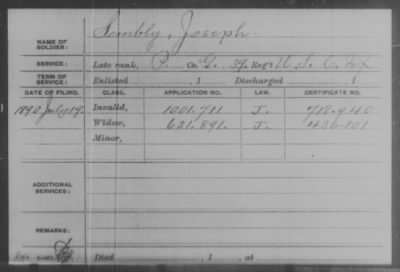 NAME OF SOLDIER: Sembly, Joseph.
SERVICE: Late rank, P. Co. G. 39, Reg't U. S. C. Inf
TERM OF SERVICE: Enlisted , 1 Discharged , 1
DATE OF FILING. CLASS. APPLICATION NO. LAW. CERTIFICATE NO.
1890 July 19. Invalid, 1001.711 J. 718.440
Widow, 631.891. J. 436.101
Minor,
ADDITIONAL SERVICES:
REMARKS:
Died , 1 , at